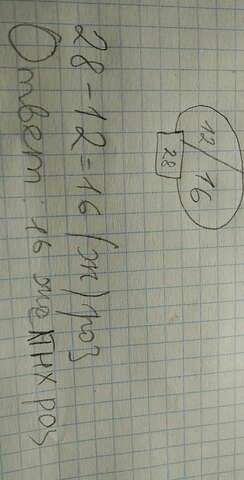 12/16
28
28-12=16 (ж) роз
Ответ: 16 желтых роз